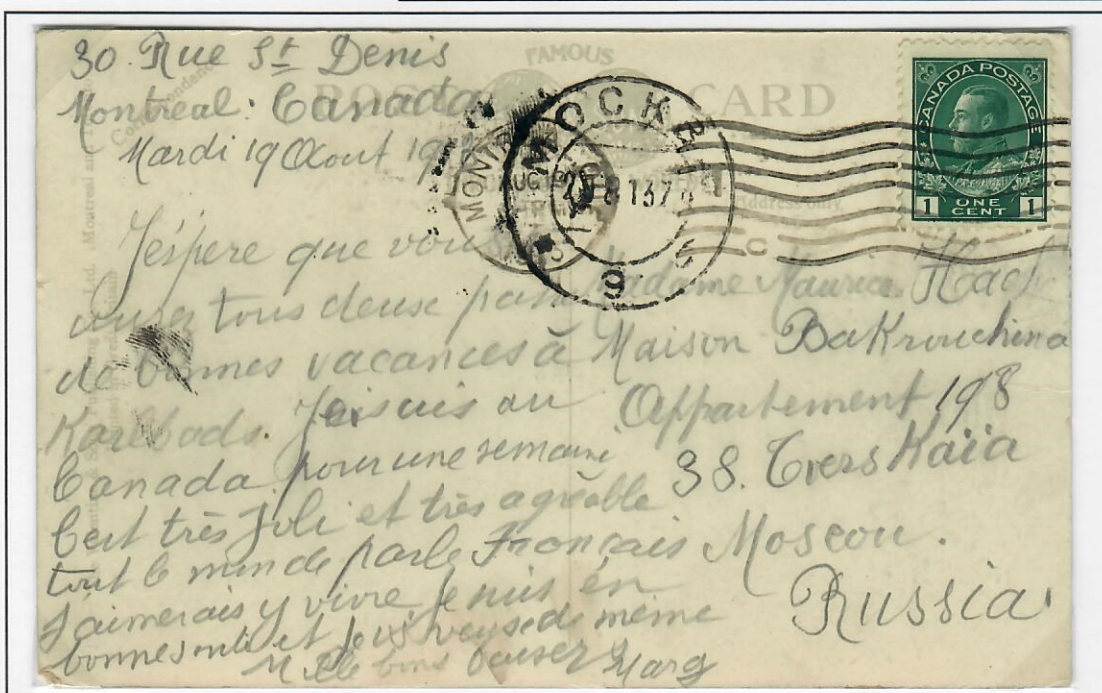 30 Rue St Denis
Montreal. Canada
Mardi 19 Aout
FAMOUS
POST CARD
МОСКВА
MONT
AUG
20 8 13
9
CANADA POSTAGE
1 ONE CENT 1
C
J'éspere que vous
tous deux
de bonnes vacances à
Karlsbads. Je suis au
Canada pour une semaine
C'est très joli et très agréable
tout le monde parle Français
J'aimerais y vivre, je suis en
bonne santé et de même
Mille bons baisers Marg
Madame Maurice
Maison Bakrouchina
Appartement 198
38. Tverskaïa
Moscou.
Russia.